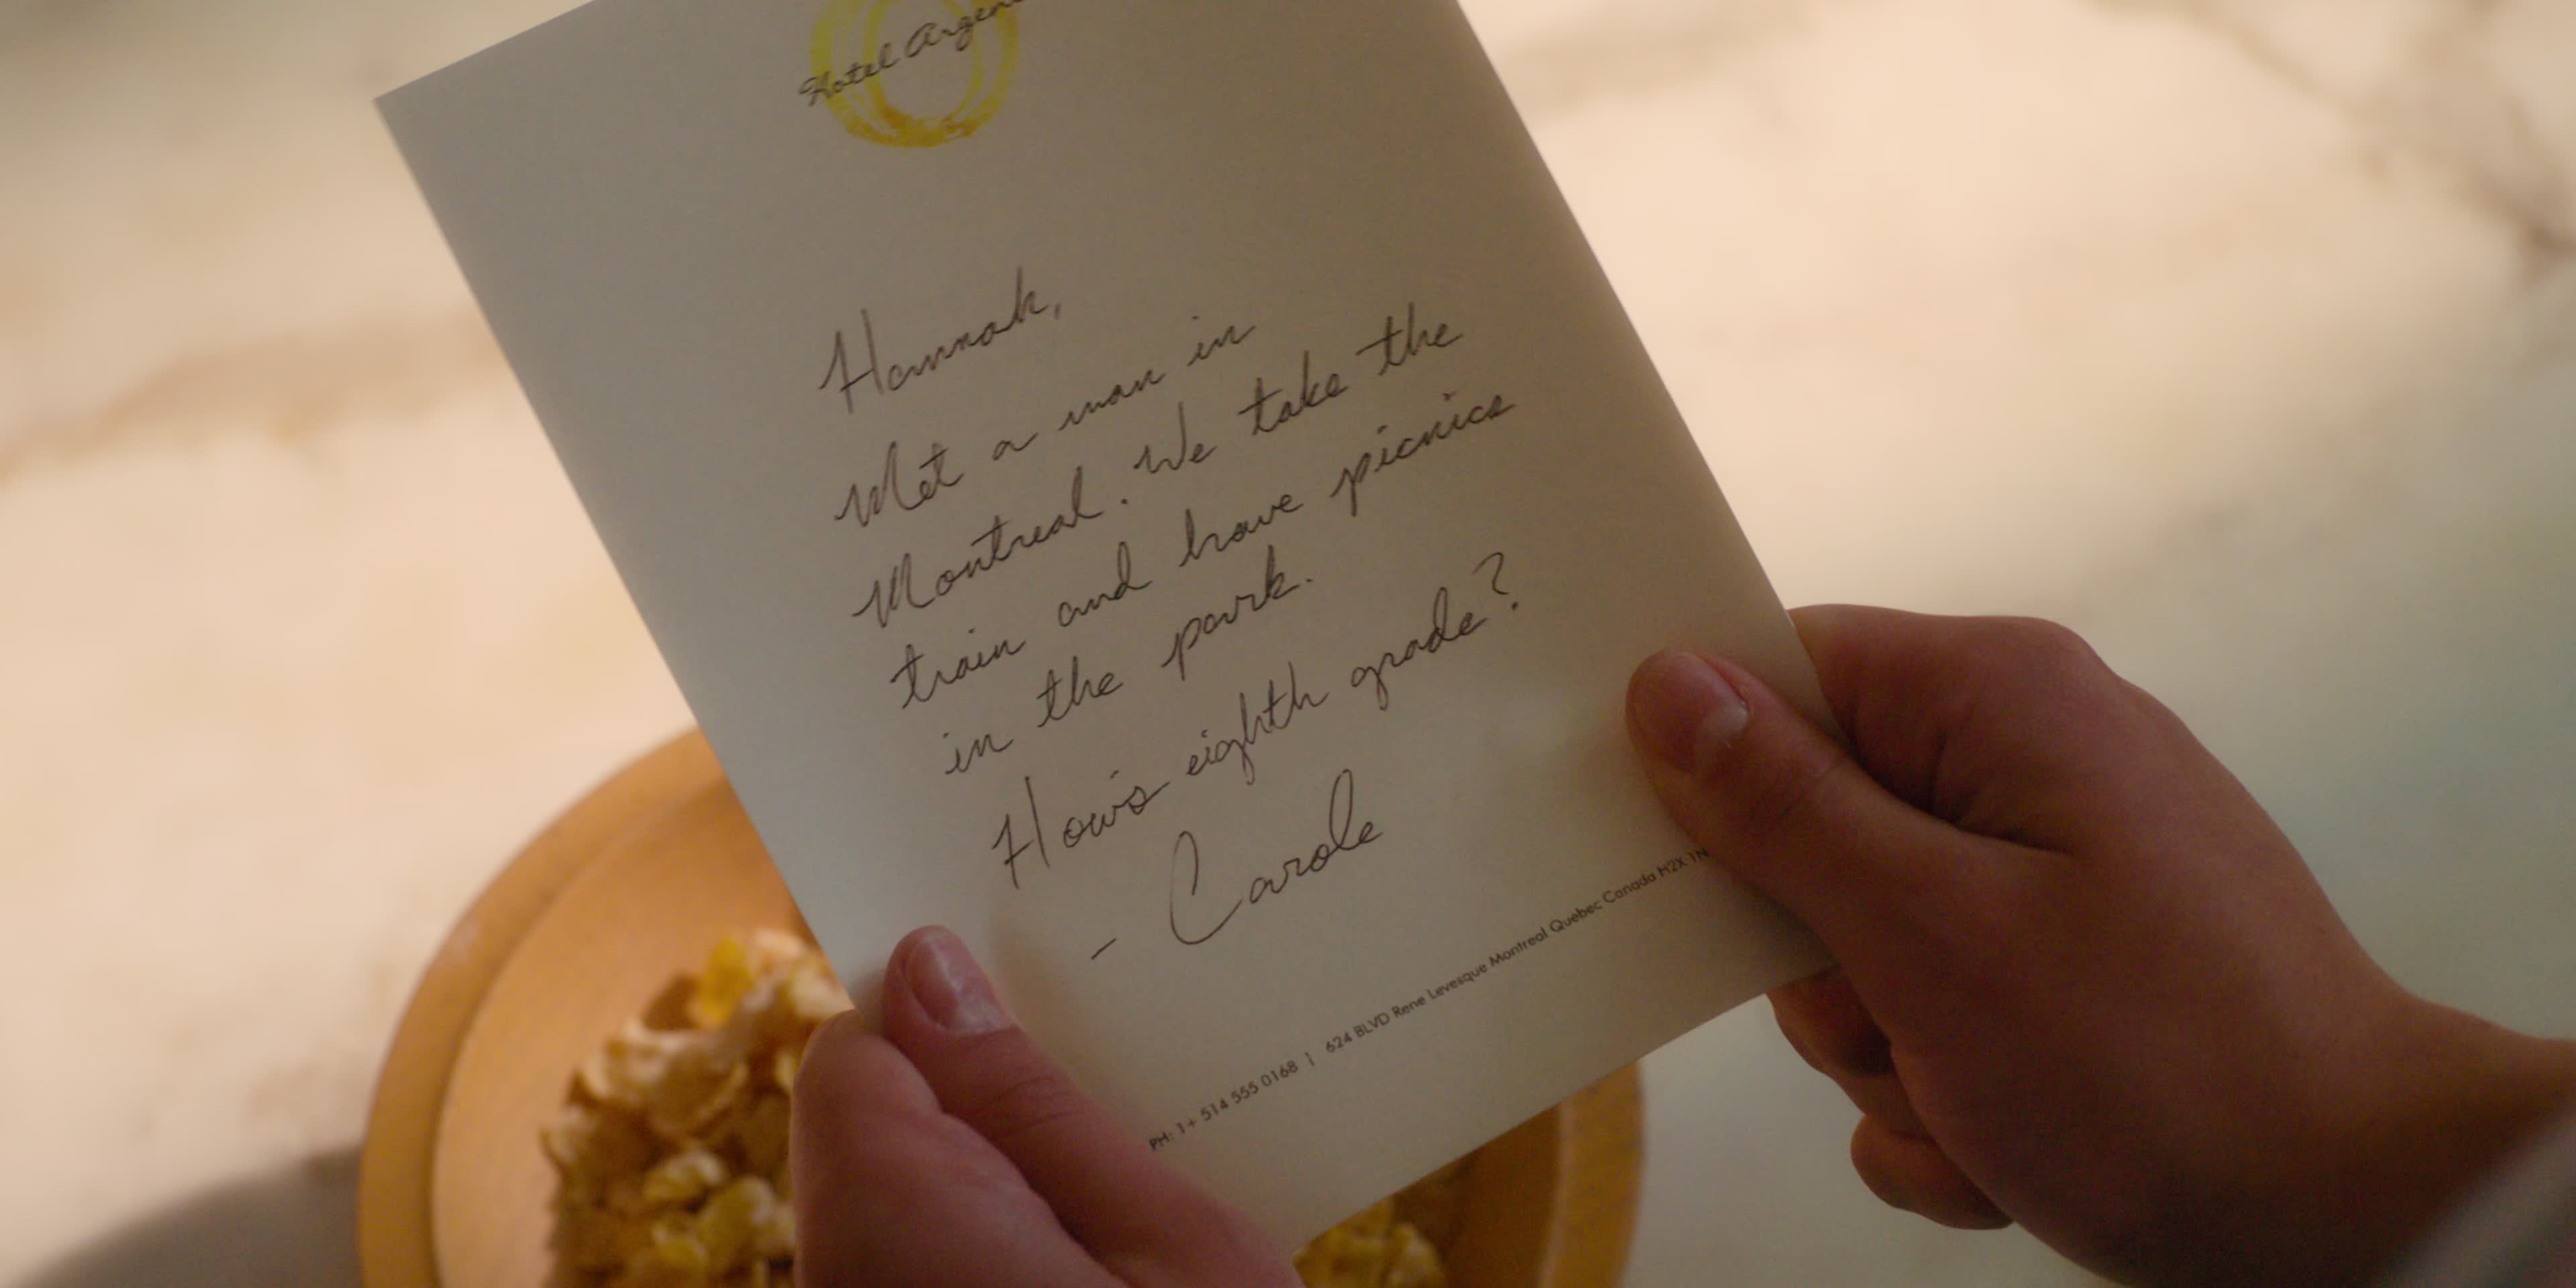 Hotel Argen
Hannah,
Met a man in
Montreal. We take the
train and have picnics
in the park.
How's eighth grade?
- Carole
PH: 1+ 514 555 0168 | 624 BLVD Rene Levesque Montreal Quebec Canada H2X 1N